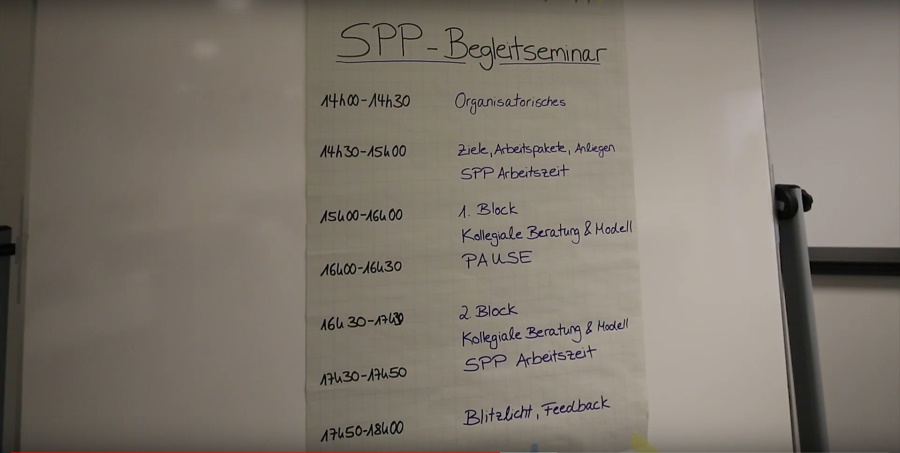 SPP - Begleitseminar
14h00-14h30 Organisatorisches
14h30-15h00 Ziele, Arbeitspakete, Anliegen
SPP Arbeitszeit
15h00-16h00 1. Block
Kollegiale Beratung & Modell
16h00-16h30 PAUSE
16h30-17h30 2. Block
Kollegiale Beratung & Modell
17h30-17h50 SPP Arbeitszeit
17h50-18h00 Blitzlicht, Feedback